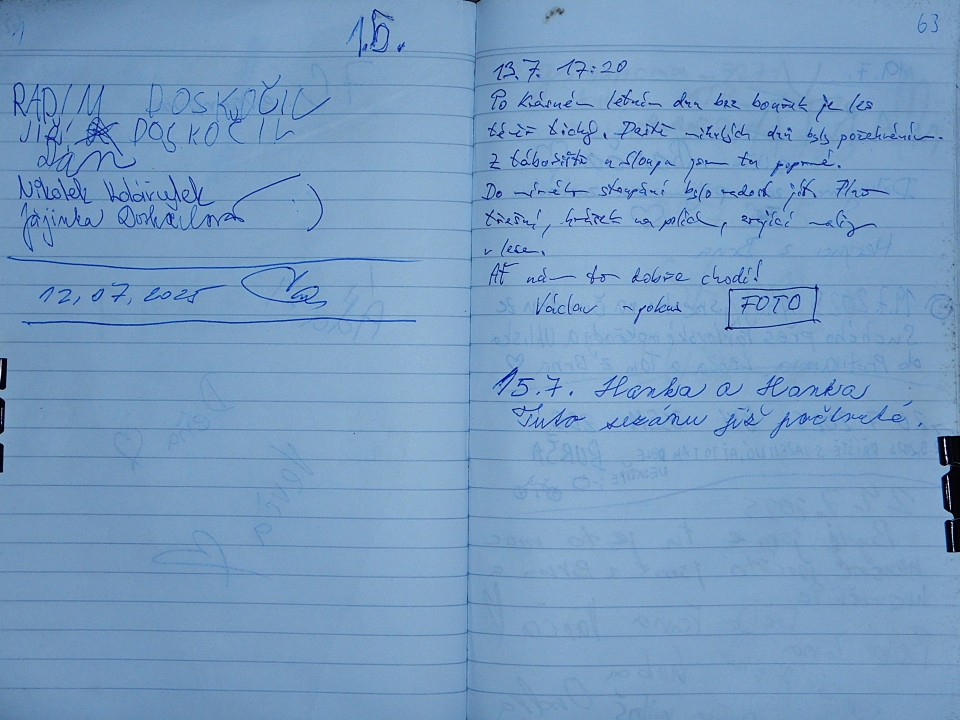 1.5.
RADIM DOSKOČIL
JIŘÍ DOSKOČIL
Dan
Nikolek
Jájinka :)
12,07,2025
63
13.7. 17:20
Po krásném letním dnu bez bouřek je les
téměř tichý. Deště minulých dnů byly požehnáním.
Z tábořiště u sloupu jsem tu poprvé.
Do mírného stoupání bylo radost jít. Plno
třešní, hrášek na polích, zrající maliny
v lese.
Ať nám to dobře chodí!
Václav - pokus FOTO
15.7. Hanka a Hanka
Tuto sezónu již počtvrté.